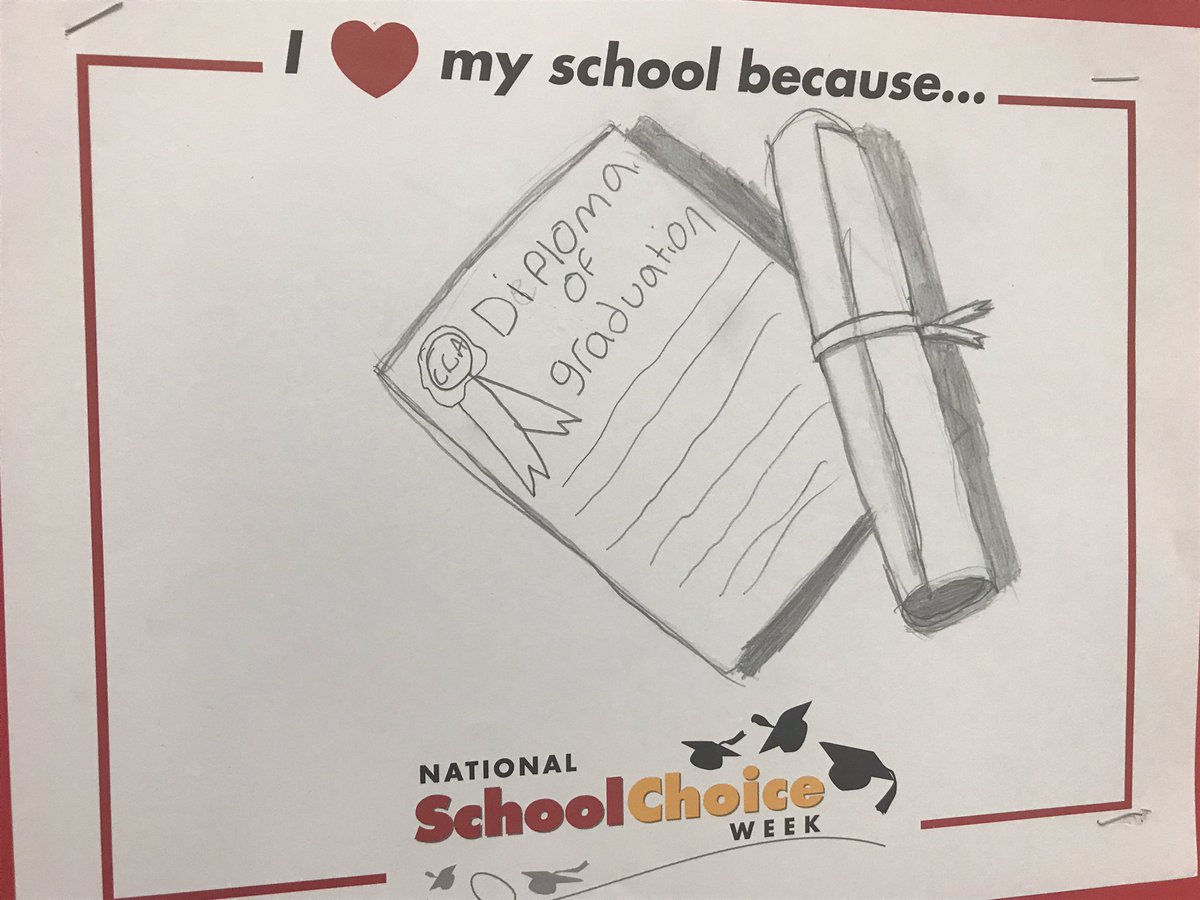 I my school because...
Diploma.
OF
graduation
C.C.A
NATIONAL
SchoolChoice
WEEK